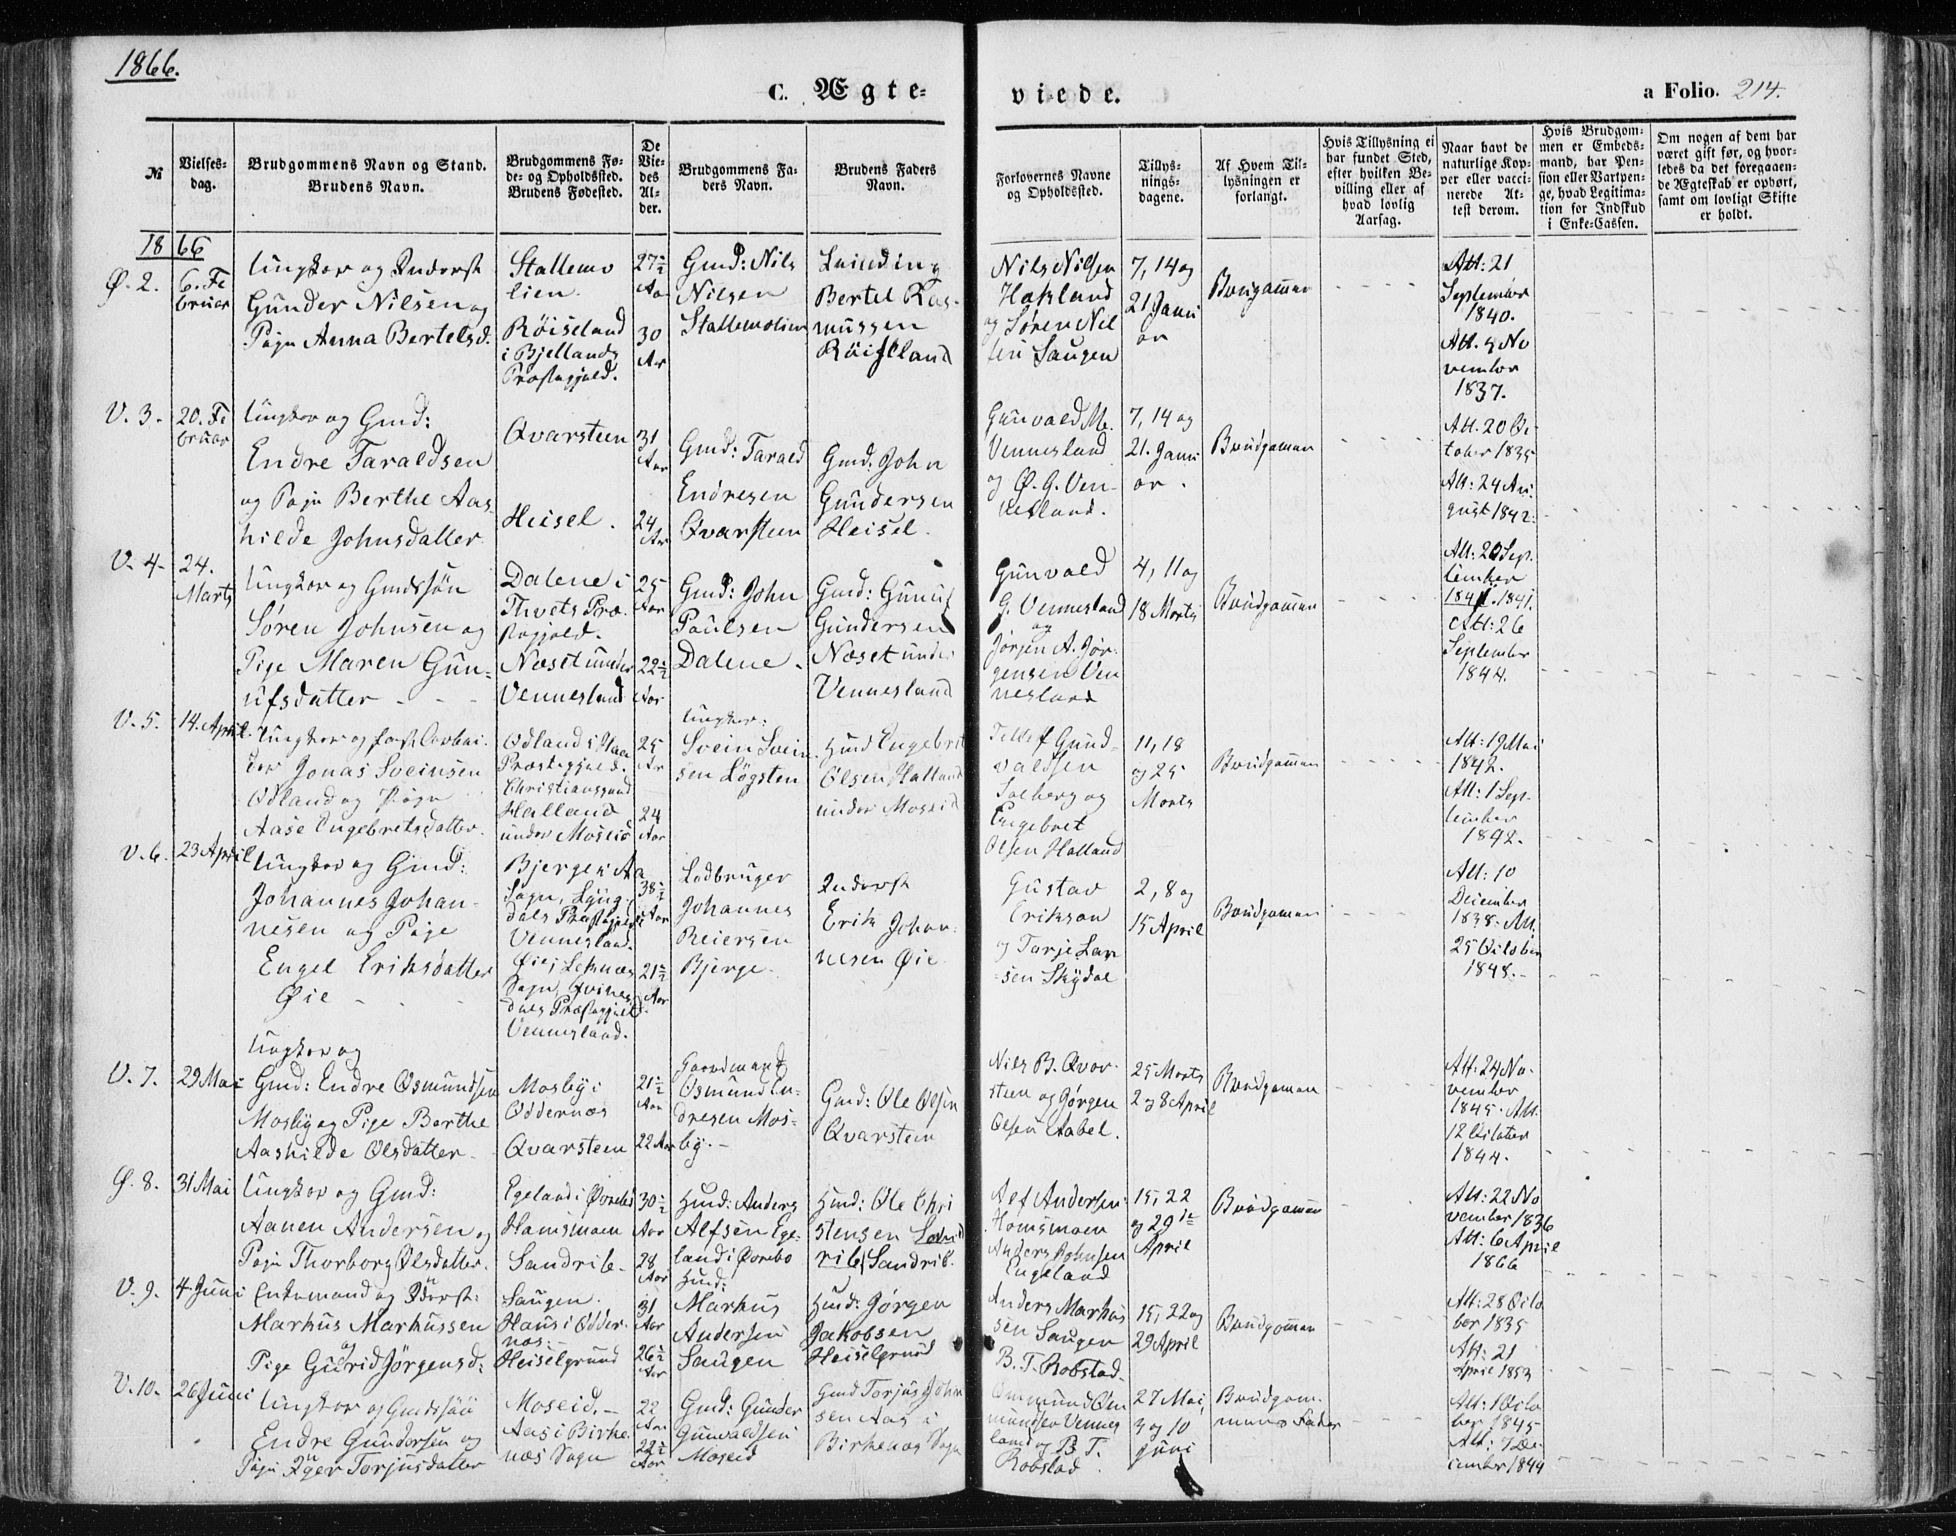 1866.
C. Ægte-
viede.
a Folio. 214.
№
Vielses-
dag.
Brudgommens Navn og Stand.
Brudens Navn.
Brudgommens Fø-
de- og Opholdssted.
Brudens Fødested.
De
Vie-
des
Al-
der.
Brudgommens Fa-
ders Navn.
Brudens Faders
Navn.
Forlovernes Navne
og Opholdssted.
Tillys-
nings-
dagene.
Af Hvem Til-
lysningen er
forlangt.
Hvis Tillysning ei
har fundet Sted,
efter hvilken Be-
villing eller af
hvad lovlig
Aarsag.
Naar havt de
naturlige Kop-
per eller vacci-
nerede At-
test derom.
Hvis Brudgom-
men er Embeds-
mand, har Pen-
sion eller Vartpen-
ge, hvad Legitima-
tion for Indskud
i Enke-Cassen.
Om nogen af dem har
været gift før, og hvor-
ledes da det foregaaen-
de Ægteskab er ophørt,
samt om lovligt Skifte
er holdt.
1866
Ø. 2.
6. Fe
bruar
Ungkar og Inderst
Gunder Nilsen og
Pige Anna Bertelsd.
Stallemo
lien.
Röiseland
i Bjellands
Præstegjeld.
27½
Aar
30
Aar
Gmd: Nils
Nilsen
Stallemolien
Bertel Ras-
mussen
Röiseland
Nils Nilsen
Hækland
og Søren Nil
sen Saugen
7, 14 og
21 Janu
ar
Brudgommen
Att: 21
September
1840.
Att. 4 No
vember
1837.
V. 3.
20. Fe
bruar
Ungkar og Gmd:
Endre Taraldsen
og Pige Berthe Aas-
hilde Johnsdatter
Qvarsteen
Heisel.
31
Aar
24
Aar
Gmd: Tarald
Endresen
Qvarsteen
Gmd. John
Gundersen
Heisel.
Gunvald M.
Vennesland
og Ø. G. Ven-
nesland.
7, 14 og
21. Janu
ar.
Brudgommen
Att. 20 Oc-
tober 1835
Att: 24 Au
gust 1842.
V. 4.
24.
Marts
Ungkar og Gmdssøn
Søren Johnsen og
Pige Maren Gun-
ufsdatter
Dalene i
Thvets Præ-
stegjeld.
Næset under
Vennesland
25
Aar
22½
Aar
Gmd: John
Paulsen
Dalene.
Gmd: Gunuf
Gundersen
Næset under
Vennesland
Gunvald
G. Vennesland
og
Jørgen A. Jør-
gensen Ven
nesland
4, 11 og
18 Marts
Brudgommen
Att: 20 Sep-
tember
1841. 1841.
Att: 26
September
1844.
V. 5.
14. April.
Ungkar og fast Arbei-
der Jonas Sveinsen
Odland og Pige
Aase Engebretsdatter.
Odland i
Præstegjeld.
Christianssand
Halland
under Moseid
25
Ar
24
Aar
Ungkar:
Svein Svein-
sen Lögsten
Husmd Engebret
Olsen Halland
under Moseid
Tellef Gund-
valdsen
Solberg og
Engebret
Olsen Halland
11, 18
og 25
Marts
Brudgommen
Att: 19 Mai
1842.
Att: 1 Sep-
tember
1842.
V. 6.
23 April
Ungkar og Gmd:
Johannes Johan-
nesen og Pige
Engel Eriksdatter
Øie
Bjerge i Aa
Sogn, Lyng-
dals Præstegjeld
Vennesland.
Øie i Leknæs
Sogn, Qvines-
dals Præstegjeld.
Vennesland.
38½
Aar
21½
Aar
Ladbruger
Johannes
Reiersen
Bjerge
Inderst
Erik Johan-
nesen Øie
Gustav
Erikson
og Tarje Lar
sen Skydal
2, 8 og
15 April
Brudgommen
Att: 10
December
1838. Att.
25 October
1848.
V. 7.
29 Mai
Ungkar og
Gmd: Endre Osmundsen
Mosby og Pige Berthe
Aashilde Olsdatter
Mosby i
Oddernæs
Qvarsteen
21½
Aar
22 Aar
Gaardmand
Osmund En-
dresen Mos-
by.
Gmd: Ole Olsen
Qvarsteen
Nils B. Qvar-
steen og Jørgen
Olsen Aabel.
25 Marts
2 og 8 April
Brudgommen
Att: 24 No-
vember
1845. Att:
12 October
1844.
Ø. 8.
31 Mai
Ungkar og Gmd:
Aanen Andersen og
Pige Thorborg Olsdatter.
Egeland i Øvrebø
Hamsmoen
Sandrib
30½
Aar
28
Aar
Husmd: Anders
Alfsen Ege-
land i Øvrebø
Husmd: Ole Chri
stensen
rib Sandrib.
Alf Andersen
Homsmoen
Anders Johnsen
Engeland
15, 22
og 29de
April
Brudgommen
Att: 22 No
vember 1836
Att: 6 April
1866
V. 9.
4 Juni
Enkemand og Inderst:
Markus Markussen
og
Pige Gurid Jörgensd:
Saugen.
Haus i Odder-
næs.
Heiselgrund
31
Aar
26½
Aar
Husmd:
Markus
Andersen
Saugen
Husmd: Jørgen
Jakobsen
Heiselgrund
Anders Markus
sen Saugen
B. T. Robstad
15, 22 og
29 April
Brudgommen
Att: 28 Octo
ber 1835
Att: 21
April 1853
V. 10.
26 Juni
Ungkar og Gmdssön
Endre Gundersen og
Pige Inger Torjusdatter
Moseid.
Aas i Birke
næs Sogn
22
Aar
22½
Aar
Gmd: Gunder
Gunvaldsen
Moseid
Gmd Torjus John
sen Aas i
Birkenæs Sogn
Omund Om
mundsen Vennes
land og B. T.
Robstad
27 Mai,
3 og 10
Juni
Brudgom-
mens Fader
Att: 1 Octo
ber 1845
Att: 7 De-
cember 1844